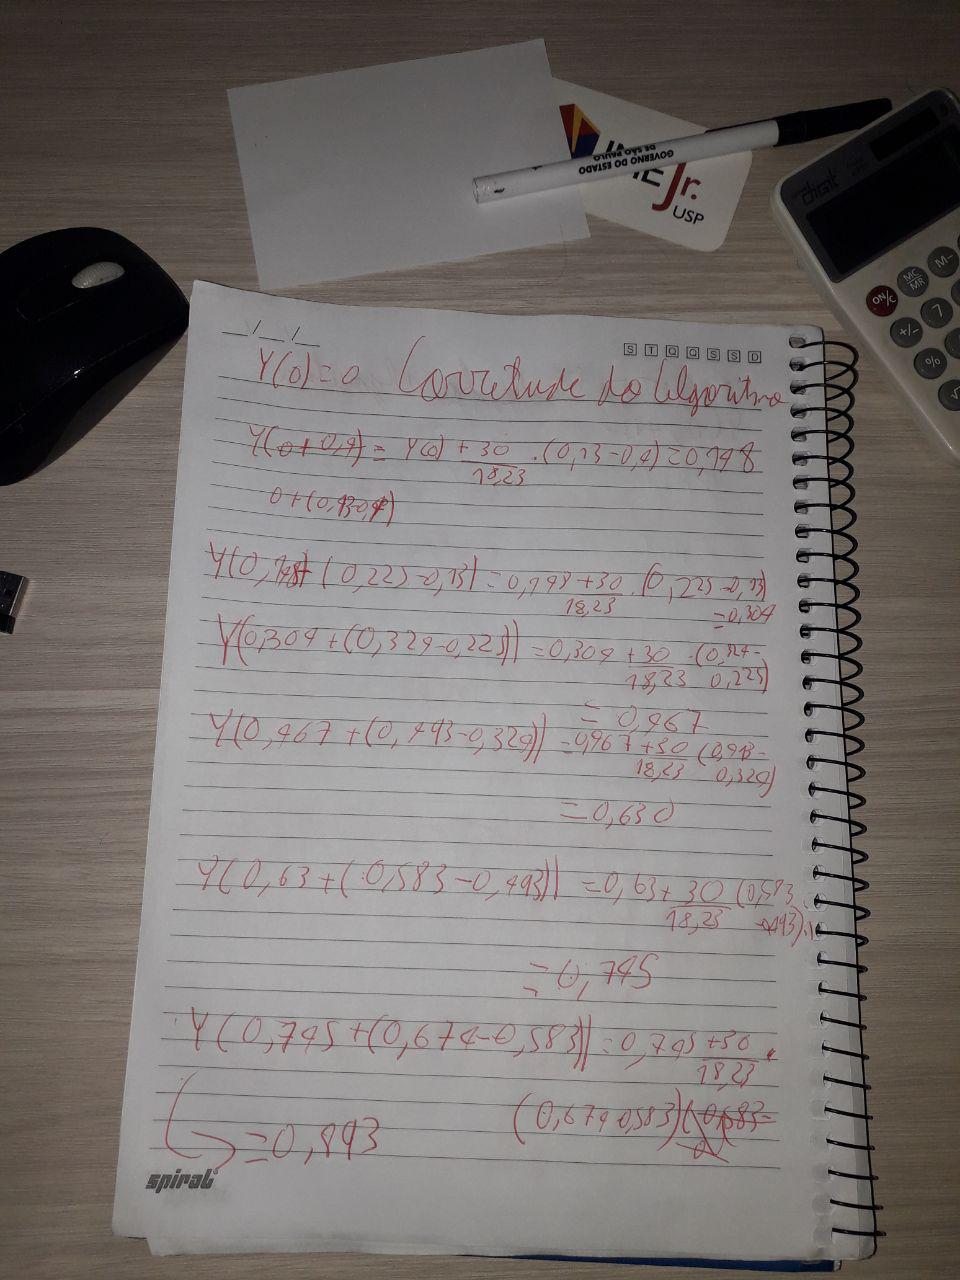 GOVERNO DO ESTADO
DE SÃO PAULO
Jr.
USP
digit
ON/C
MC/MR
M-
+/-
7
%
√
__/__/__
S T Q Q S S D
Y(0)=0 Corretude do Algoritmo
Y(0+0,4) = Y(0) + 30/18,23 · (0,13-0,4) = 0,148
0+(0,13-0,4)
Y(0,148+(0,225-0,13) = 0,148+30/18,23 · (0,225-0,13)
=0,304
Y(0,304+(0,324-0,225)) = 0,304+30/18,23 · (0,324-
0,225)
= 0,467
Y(0,467+(0,493-0,324)) = 0,467+30/18,23 (0,493-
0,324)
= 0,630
Y(0,63+(0,583-0,493)) = 0,63+30/18,23 (0,583
-0,493)
= 0,745
Y(0,745+(0,674-0,583)) = 0,745+30/18,23 ·
(0,674-0,583)
=0,893
spiral